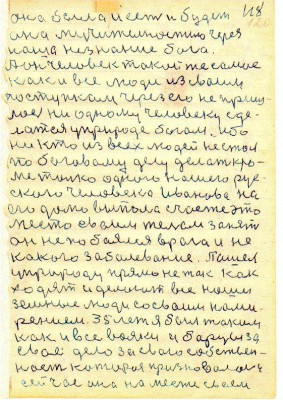 118
она была и есть и будет
она мучительностию через
наша незнание бога.
Он человек такой же самое
как и все люди из своим
поступкам через его не пришлося
ни одному человеку сде
латся природе богом. ибо
ни кто из всех людей не стал
то богавому делу делат кро
ме толко одного нашего рус
ского человека Иванова на
его
место своим телам занят
он не боялся врага и не
какого заболевание. Пашел
у природу прямо не так как
ходят и делают вне наши
земные люди со своим наме
рением. 35 лет я был таким
как и все вояки и борцы за
своё дело за свою собствен
ност которая признавалась
сейчас она на месте своем